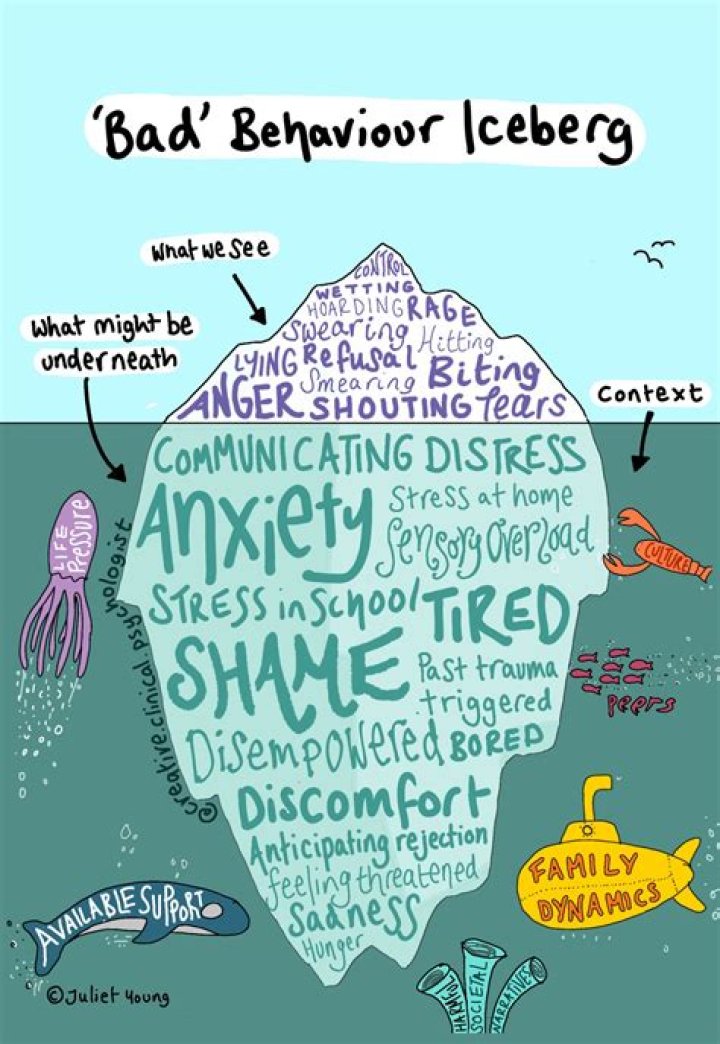 'Bad' Behaviour Iceberg
What we see
What might be
underneath
Context
CONTROL
WETTING
HOARDING RAGE
Swearing Hitting
LYING Refusal
Smearing Biting
ANGER SHOUTING Tears
COMMUNICATING DISTRESS
Anxiety
Stress at home
Sensory Overload
STRESS in School TIRED
SHAME
Past trauma
triggered
Disempowered BORED
Discomfort
Anticipating rejection
feeling threatened
Sadness
Hunger
LIFE
Pressure
CULTURE
peers
FAMILY
DYNAMICS
AVAILABLE SUPPORT
HARMFUL
SOCIETAL
NARRATIVES
@creative.clinical.psychologist
©Juliet Young